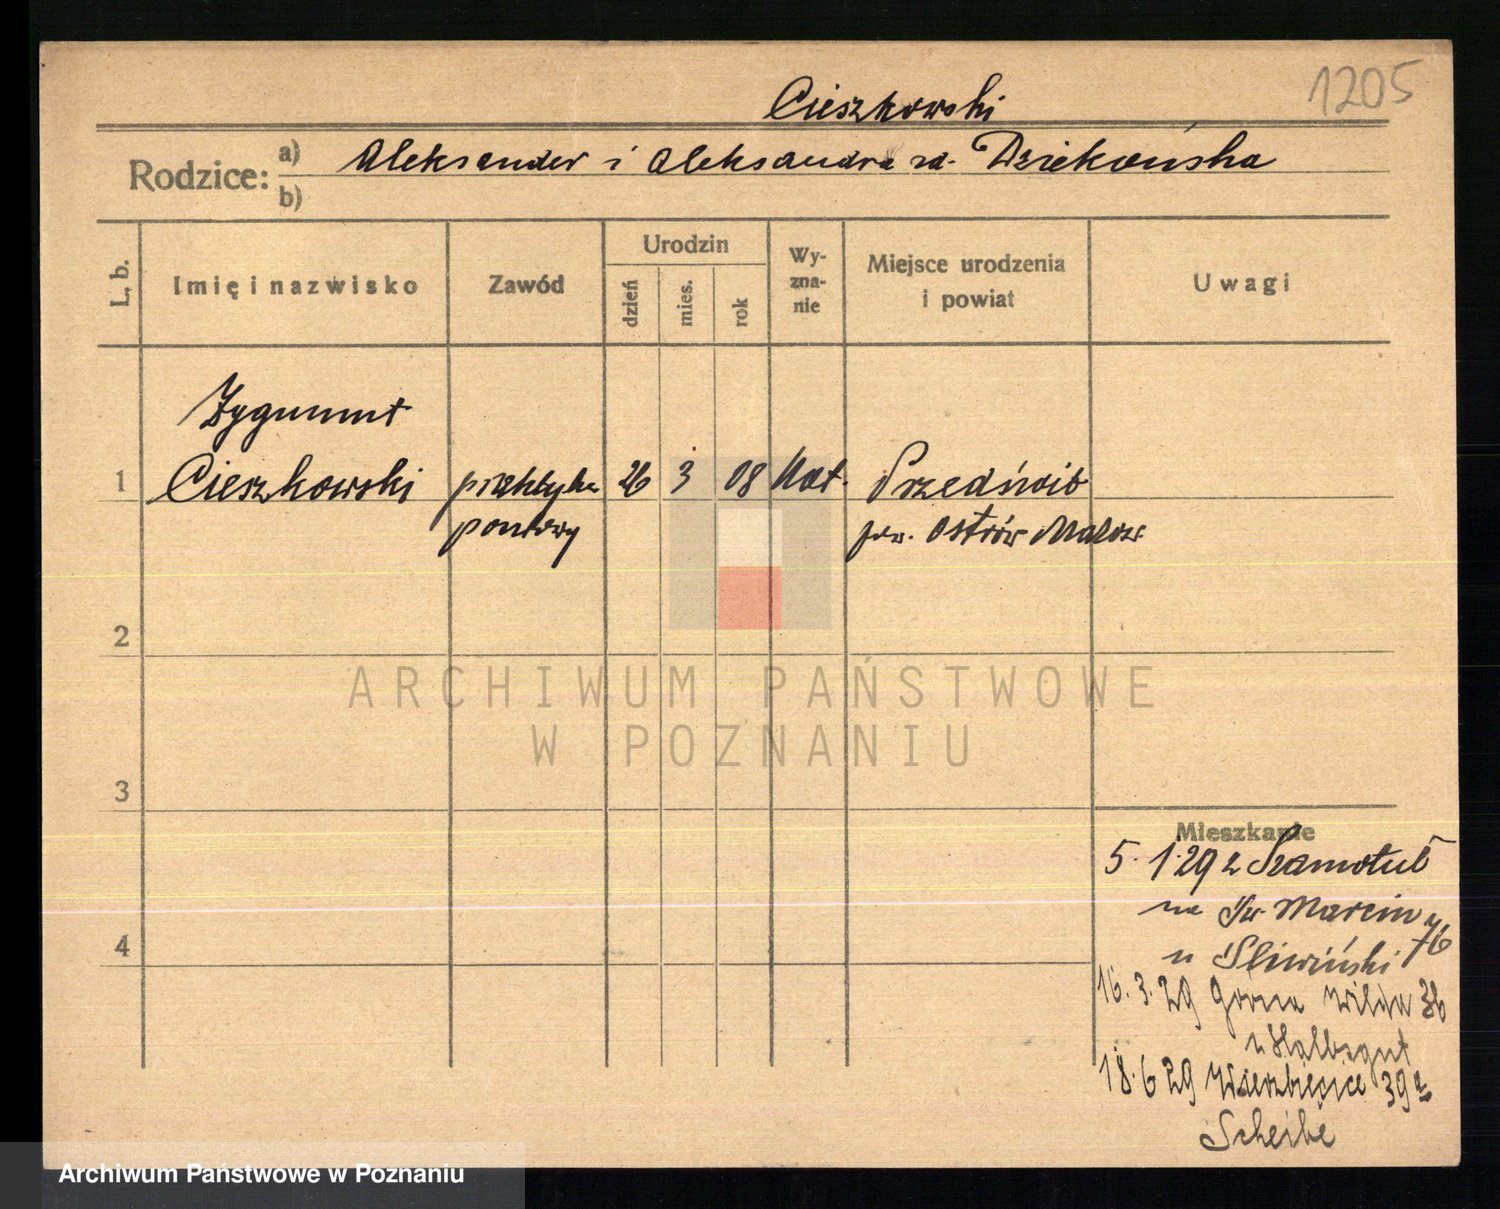 1205
Cieszkowski
Rodzice: a) Aleksander i Aleksandra zd. Dziekońska
b)
L. b.
Imię i nazwisko
Zawód
Urodzin
dzień
mies.
rok
Wy-
zna-
nie
Miejsce urodzenia
i powiat
Uwagi
Zygmunt
1 Cieszkowski praktyka 26 3 08 kat. Przedświt
pow. Ostrów Mazow.
2
3
4
Mieszkanie
5.1.29 z Szamotuł
na Św. Marcin 76
u Śliwiński
16.3.29 Górna Wilda 36
u Halbsgut
18.6.29 Wierzbięcice 39a
Scheibe
ARCHIWUM PAŃSTWOWE
W POZNANIU
Archiwum Państwowe w Poznaniu